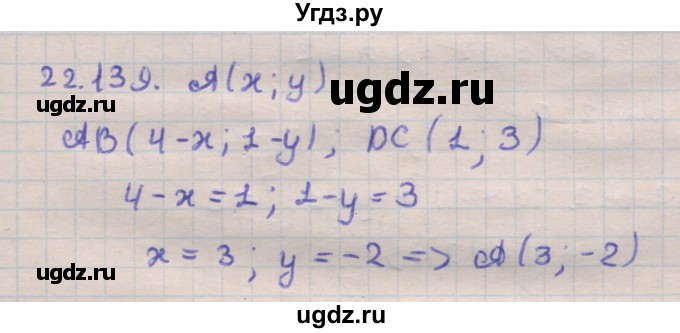 Угдз.ру
22.139. A(x; y)
ugdz.ru
AB(4-x; 1-y); DC(1; 3)
4-x=1; 1-y=3
x = 3; y = -2 => A(3; -2)
ugdz.ru
ugdz.ru
ugdz.ru